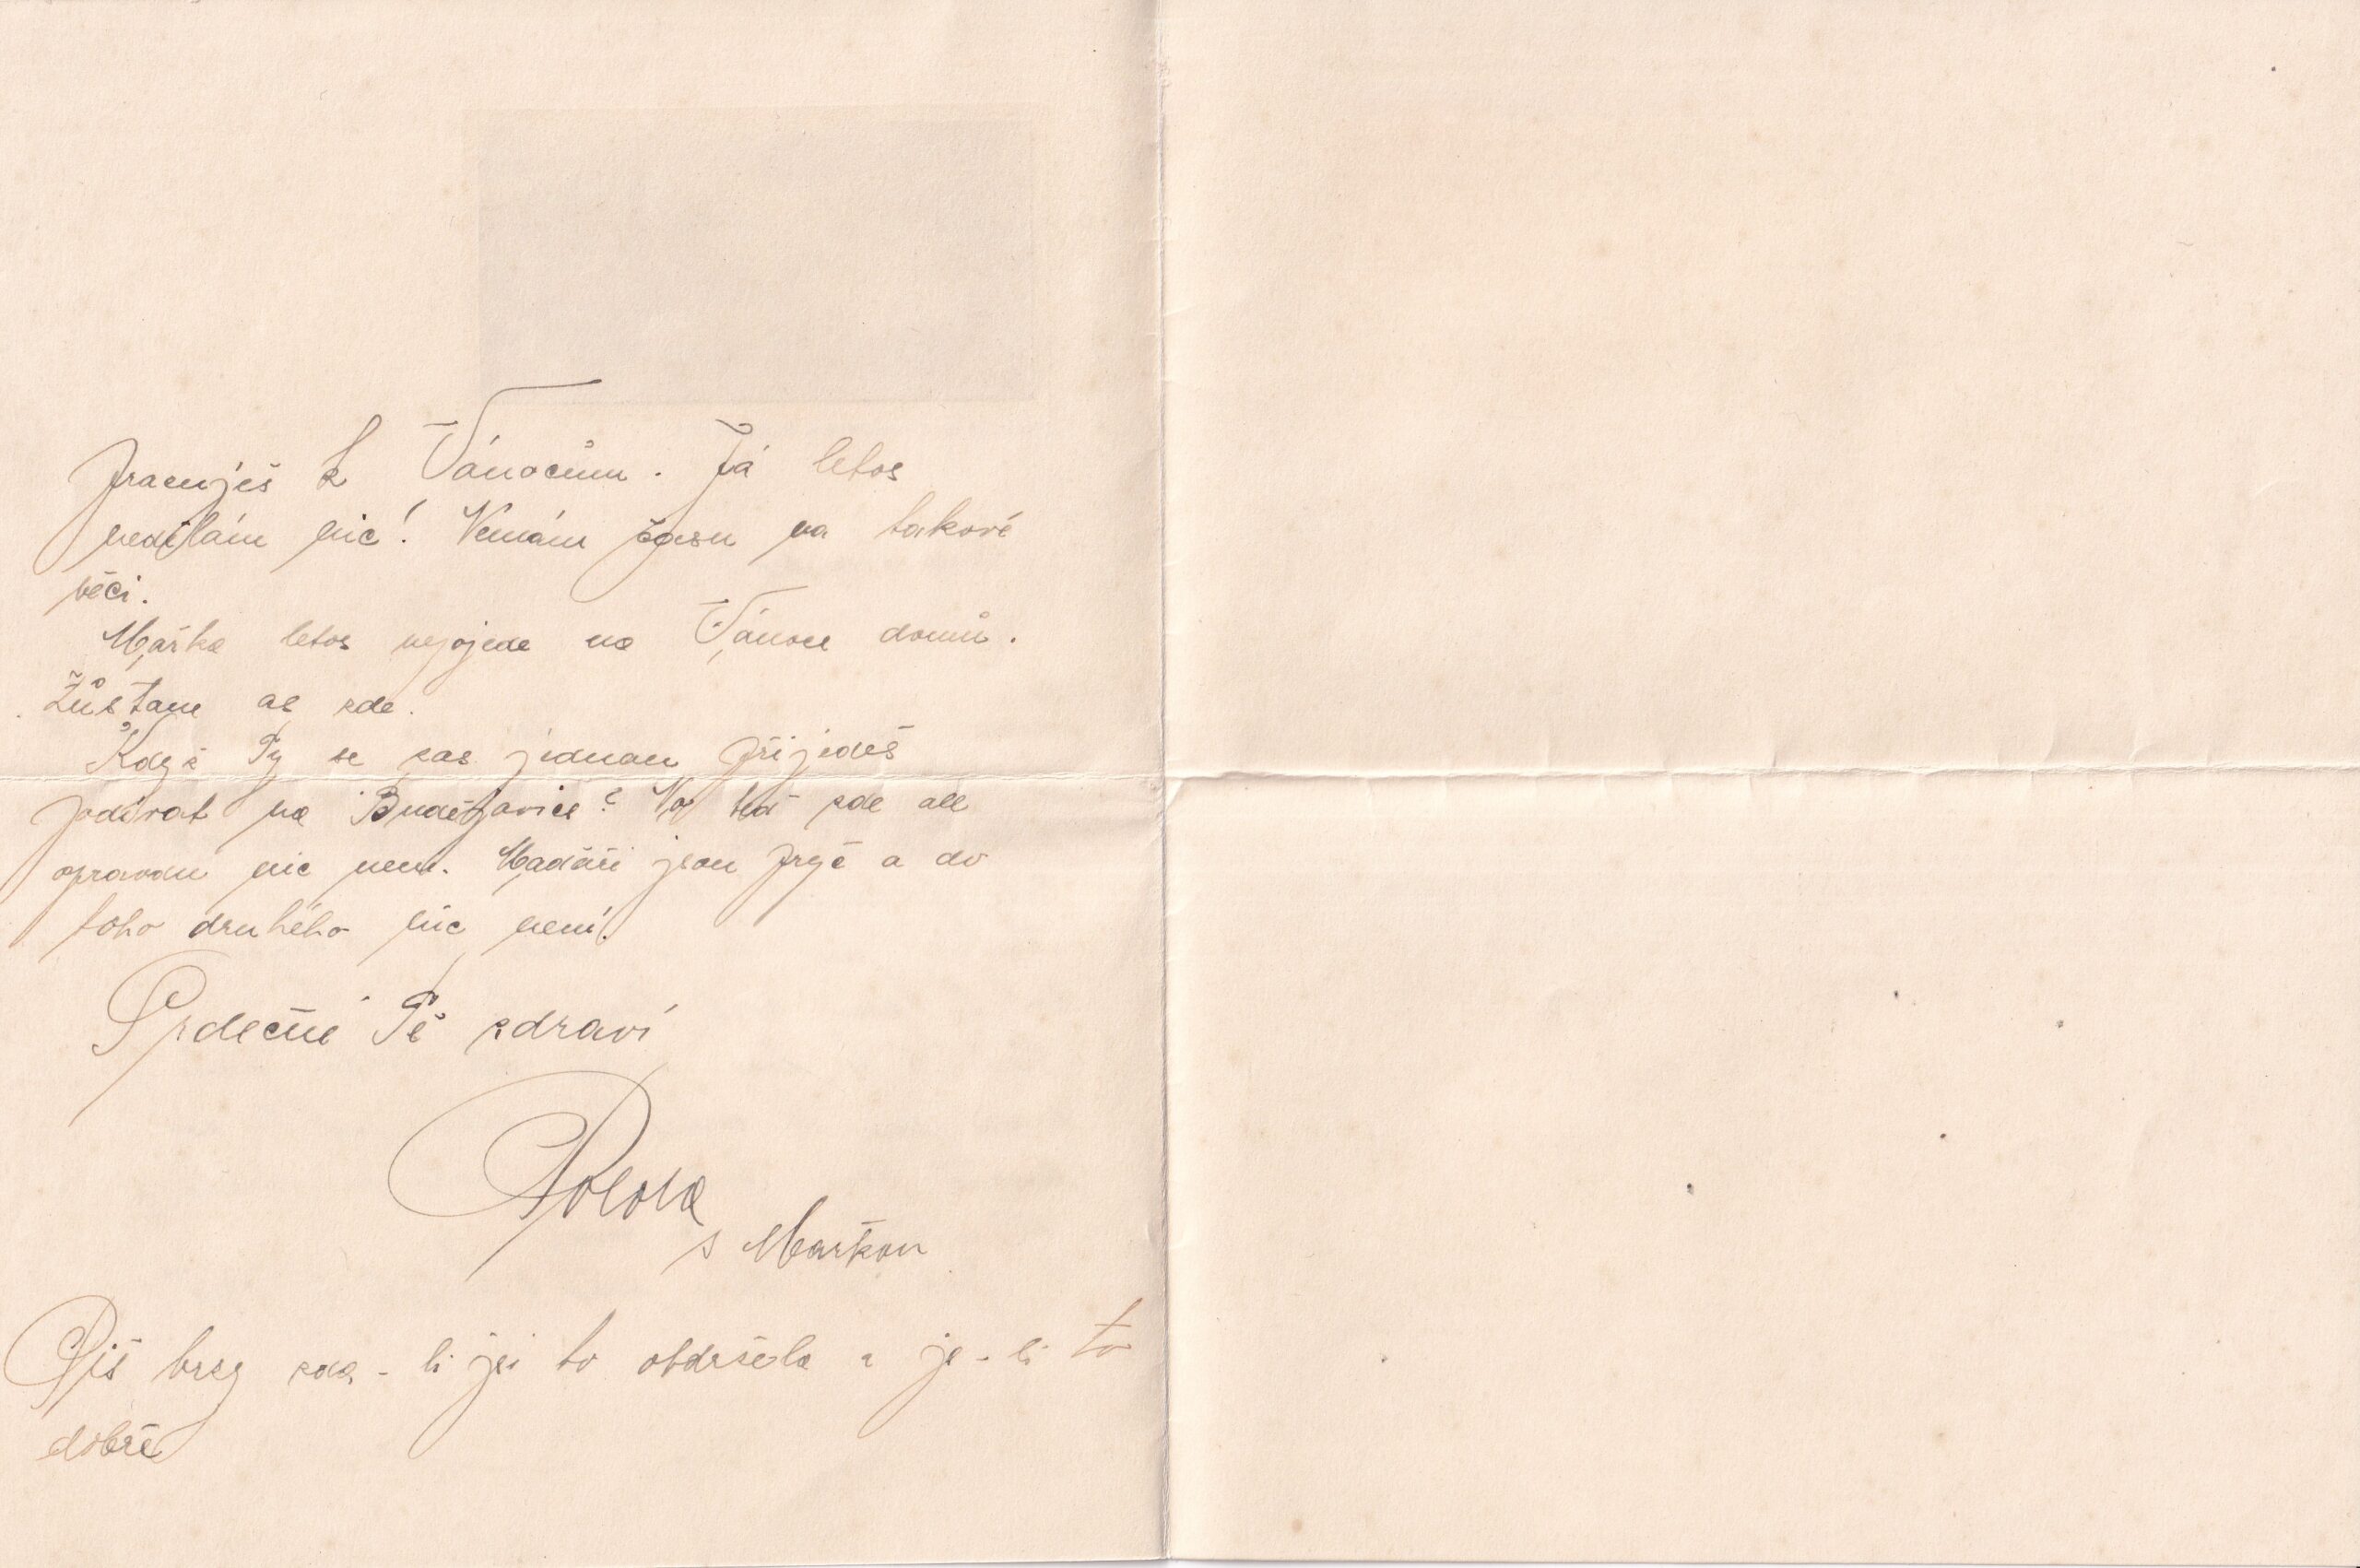 pracuješ k Vánocům. Já letos
nedělám nic! Nemám času na takové
věci.
Mařka letos nepojede na Vánoce domů.
Zůstane as zde.
Když Ty se zas jednou přijedeš
podívat na Budějovice? No teď zde ale
opravdu nic není. Maďaři jsou pryč a do
toho druhého nic není.
Srdečně Tě zdraví
s Mařkou
Piš brzy zda-li jsi to obdržela a je-li to
dobré